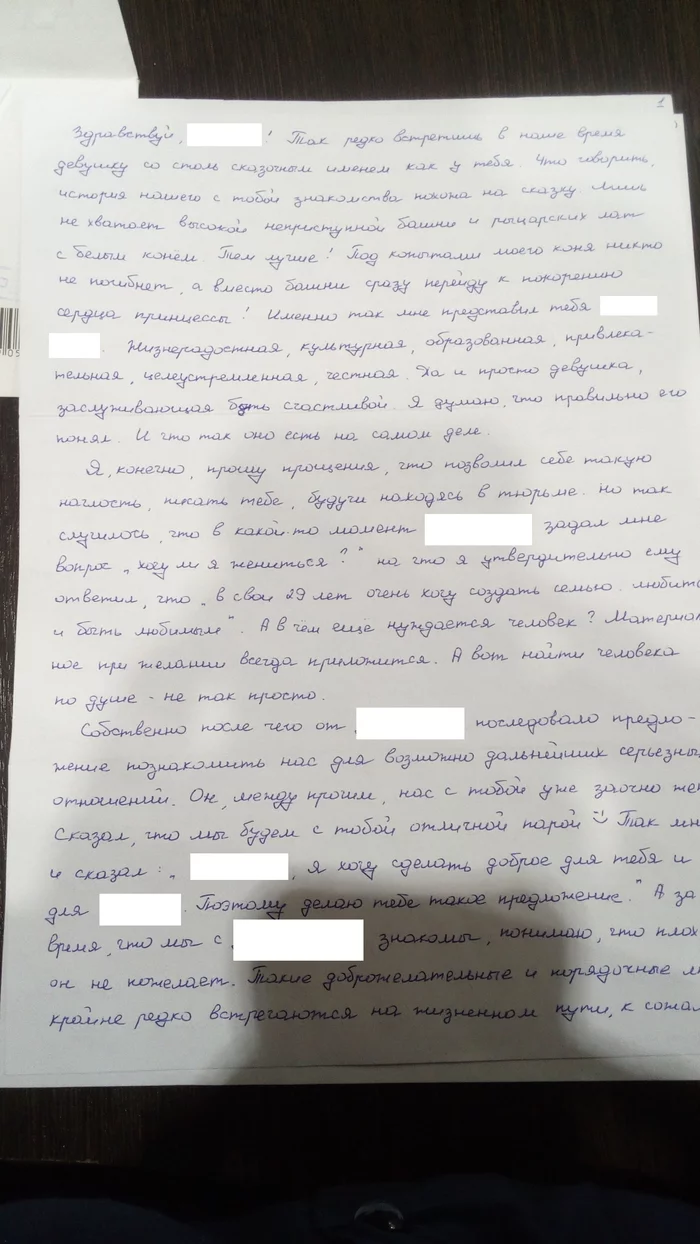 1
Здравствуй, ! Так редко встретишь в наше время
девушку со столь сказочным именем как у тебя. Что говорить,
история нашего с тобой знакомства похожа на сказку. Лишь
не хватает высокой неприступной башни и рыцарских лат
с белым конём. Тем лучше! Под копытами моего коня никто
не погибнет, а вместо башни сразу перейду к покорению
сердца принцессы! Именно так мне представил тебя
. Жизнерадостная, культурная, образованная, привлека-
тельная, целеустремленная, честная. Да и просто девушка,
заслуживающая быть счастливой. Я думаю, что правильно его
понял. И что так оно есть на самом деле.
Я, конечно, прошу прощения, что позволил себе такую
наглость, писать тебе, будучи находясь в тюрьме. Но так
случилось, что в какой-то момент задал мне
вопрос „хочу ли я жениться?" на что я утвердительно ему
ответил, что „в свои 29 лет очень хочу создать семью. любить
и быть любимым". А в чём ещё нуждается человек? Материал
ное при желании всегда приложится. А вот найти человека
по душе - не так просто.
Собственно после чего от последовало предло-
жение познакомить нас для возможно дальнейших серьезны
отношений. Он, между прочим, нас с тобой уже заочно жен
Сказал, что мы будем с тобой отличной парой :) Так мн
и сказал: „ , я хочу сделать доброе для тебя и
для . Поэтому делаю тебе такое предложение." А за
время, что мы с знакомы, понимаю, что плох
он не пожелает. Такие доброжелательные и порядочные л
крайне редко встречаются на жизненном пути, к сожал